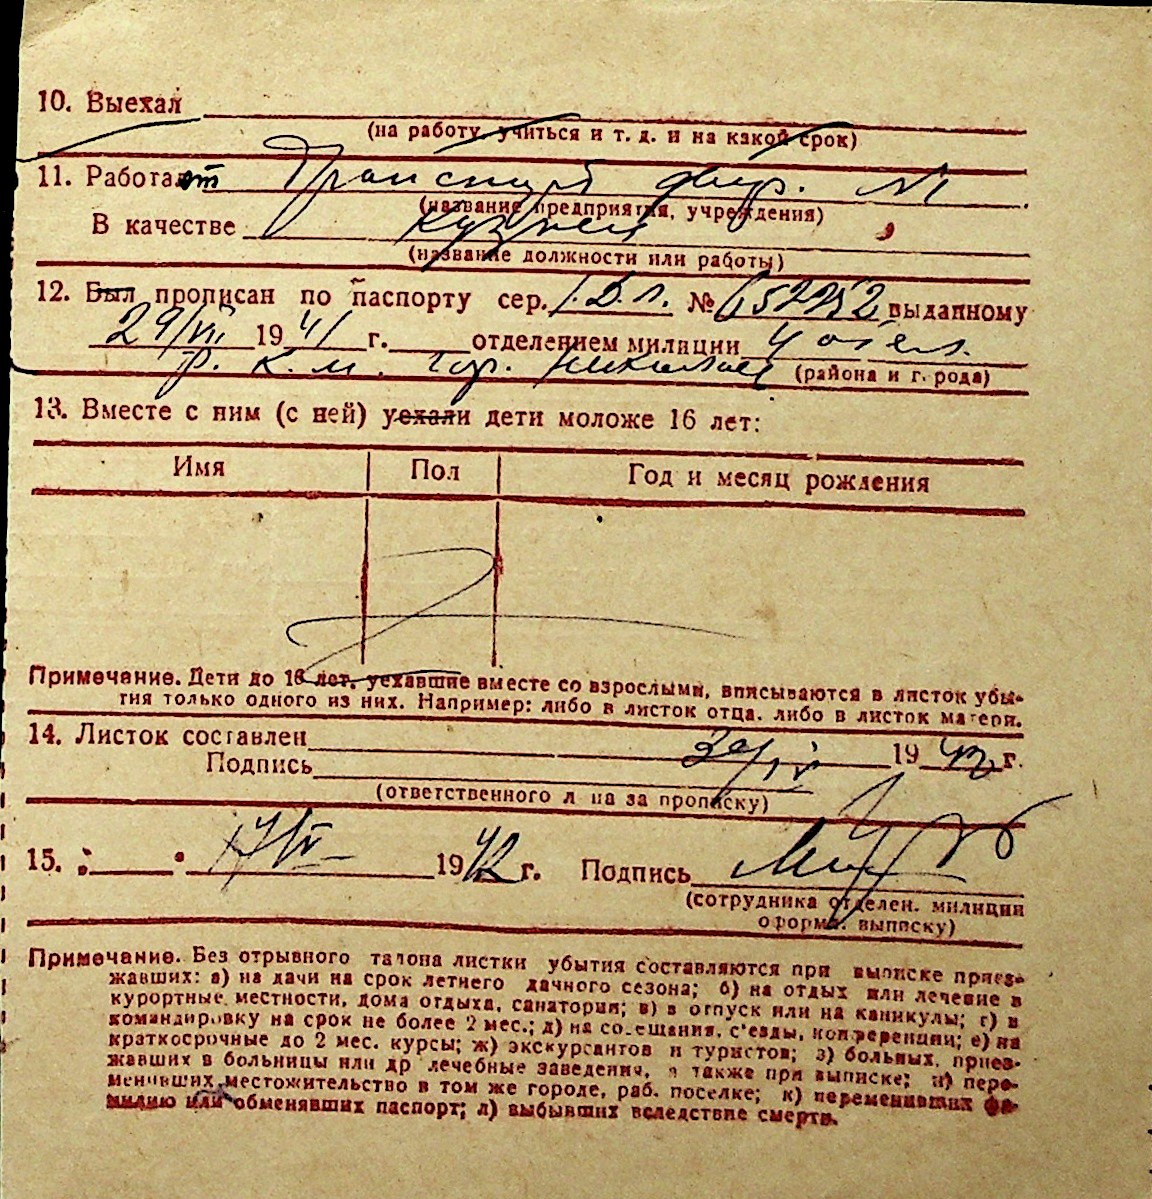 10. Выехал
(на работу, учиться и т. д. и на какой срок)
11. Работает № 1
(название предприятия, учреждения)
В качестве кузнец
(название должности или работы)
12. Был прописан по паспорту сер. № 652252 выданному
29/VII 1941 г. отделением милиции
Р. К. М. гор. (района и города)
13. Вместе с ним (с ней) уехали дети моложе 16 лет:
Имя Пол Год и месяц рождения
Примечание. Дети до 16 лет, уехавшие вместе со взрослыми, вписываются в листок убы-
тия только одного из них. Например: либо в листок отца, либо в листок матери.
14. Листок составлен 30/IV 1942 г.
Подпись
(ответственного лица за прописку)
15. 1942 г. Подпись
(сотрудника отделен. милиции
оформ. выписку)
Примечание. Без отрывного талона листки убытия составляются при выписке приез-
жавших: а) на дачи на срок летнего дачного сезона; б) на отдых или лечение в
курортные местности, дома отдыха, санатории; в) в отпуск или на каникулы; г) в
командировку на срок не более 2 мес.; д) на совещания, с'езды, конференции; е) на
краткосрочные до 2 мес. курсы; ж) экскурсантов и туристов; з) больных, приез-
жавших в больницы или др лечебные заведения, а также при выписке; и) пере-
менивших местожительство в том же городе, раб. поселке; к) переменивших фа-
милию или обменявших паспорт; л) выбывших вследствие смерти.